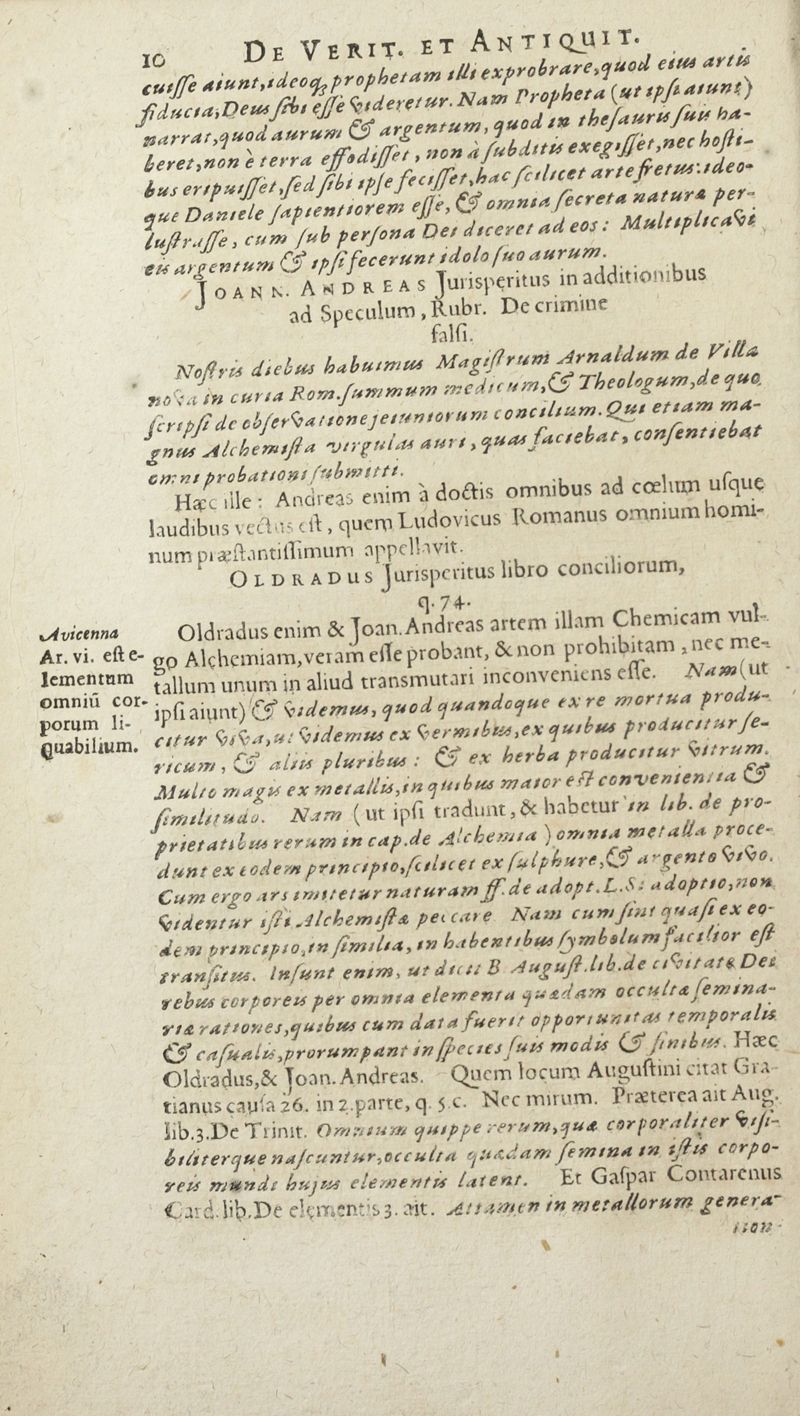 10 DE VERIT. ET ANTIQUIT.
cuisse aiunt, ideoq; prophetam illi exprobrare, quod eius artis
fiducia, Deus sibi esse videretur. Nam Propheta (ut ipsi aiunt)
narrat, quod aurum & argentum, quod in thesauris suis ha-
beret, non è terra effodisset, non à subditis exegisset, nec hosti-
bus eripuisset, sed sibi ipse fecisset, hac scilicet arte fretus: ideo-
que Daniele sapientiorem esse, & omnia secreta naturæ per-
lustrasse, cum sub persona Dei diceret ad eos: Multiplicavi
eis argentum & ipsi fecerunt idolo suo aurum.
JOANN. ANDREAS Jurisperitus in additionibus
ad Speculum, Rubr. De crimine
falsi.
Nostris diebus habuimus Magistrum Arnaldum de Villa
nova in curia Rom. summum medicum, & Theologum, de quo
scripsi de observatione jejuniorum concilium. Qui etiam ma-
gnus Alchemista virgulas auri, quas faciebat, consentiebat
omni probationi submitti.
Hæc ille: Andreas enim à doctis omnibus ad cœlum usque
laudibus vectus est, quem Ludovicus Romanus omnium homi-
num præstantissimum appellavit.
OLDRADUS Jurisperitus libro conciliorum,
q. 74.
Oldradus enim & Joan. Andreas artem illam Chemicam vul-
go Alchemiam, veram esse probant, & non prohibitam, nec me-
tallum unum in aliud transmutari inconveniens esse. Nam (ut
ipsi aiunt) & videmus, quod quandoque ex re mortua produ-
citur viva, ut videmus ex vermibus, ex quibus producitur se-
ricum, & aliis pluribus: & ex herba producitur vitrum.
Multo magis ex metallis, in quibus maior est convenientia &
similitudo. Nam (ut ipsi tradunt, & habetur in lib. de pro-
prietatibus rerum in cap. de Alchemia) omnia metalla proce-
dunt ex eodem principio, scilicet ex sulphure, & argento vivo.
Cum ergo ars imitetur naturam ff. de adopt. L. S: adoptio, non
videntur isti Alchemistæ peccare Nam cum sint quasi ex eo-
dem principio, in similia, in habentibus symbolum facilior est
transitus. Insunt enim, ut dicit B August. lib. de civitate Dei
rebus corporeis per omnia elementa quædam occultæ semina-
riæ rationes, quibus cum data fuerit opportunitas temporalis
& casualis, prorumpant in species suis modis & finibus. Hæc
Oldradus, & Joan. Andreas. Quem locum Augustini citat Gra-
tianus causa 26. in 2. parte, q. 5. c. Nec mirum. Præterea ait Aug.
lib. 3. De Trinit. Omnium quippe rerum, quæ corporaliter visi-
biliterque nascuntur, occulta quædam semina in istis corpo-
reis mundi hujus elementis latent. Et Gaspar Contarenus
Card. lib. De elementis 3. ait. Attamen in metallorum genera-
tion-
Avicenna
Ar. vi. est e-
lementum
omniū cor-
porum li-
quabilium.